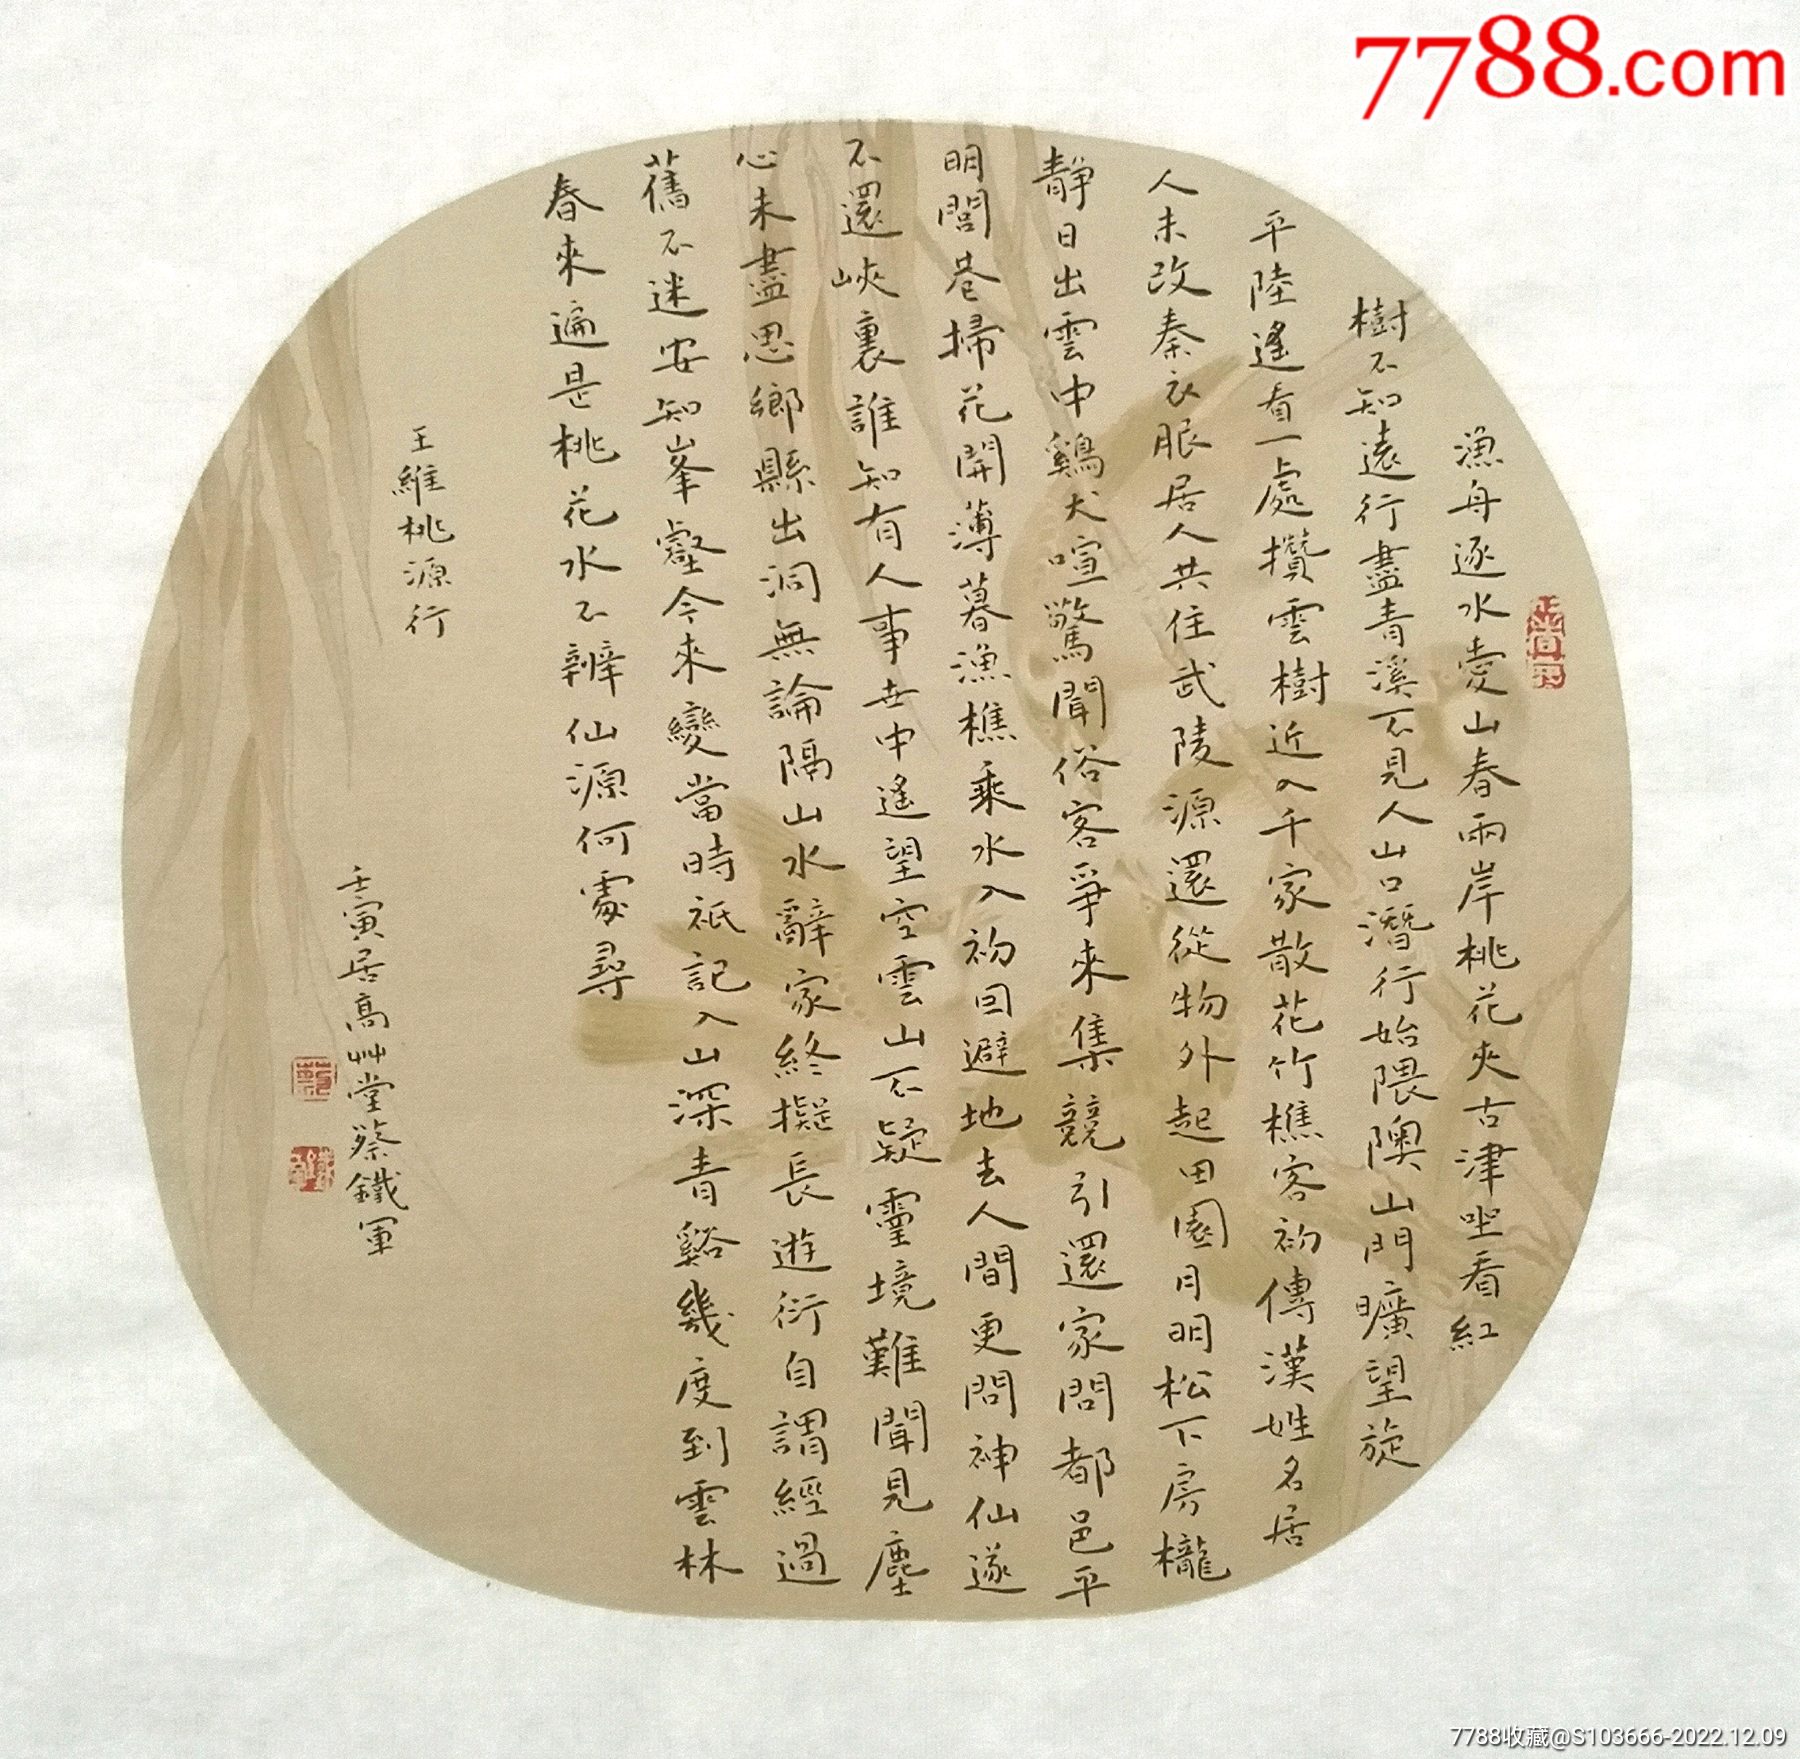 7788.com
漁舟逐水愛山春兩岸桃花夾古津坐看紅
樹不知遠行盡青溪不見人山口潛行始隈隩山門曠望旋
平陸遙看一處攢雲樹近入千家散花竹樵客初傳漢姓名居
人未改秦衣服居人共住武陵源還從物外起田園月明松下房櫳
靜日出雲中鷄犬喧驚聞俗客爭來集競引還家問都邑平
明閭巷掃花開薄暮漁樵乘水入初回避地去人間更問神仙遂
不還峽裏誰知有人事世中遙望空雲山不疑靈境難聞見塵
心未盡思鄉縣出洞無論隔山水辭家終擬長遊衍自謂經過
舊不迷安知峯壑今來變當時祇記入山深青谿幾度到雲林
春來遍是桃花水不辨仙源何處尋
王維桃源行
壬寅居高艸堂蔡鐵軍
7788收藏@S103666-2022.12.09